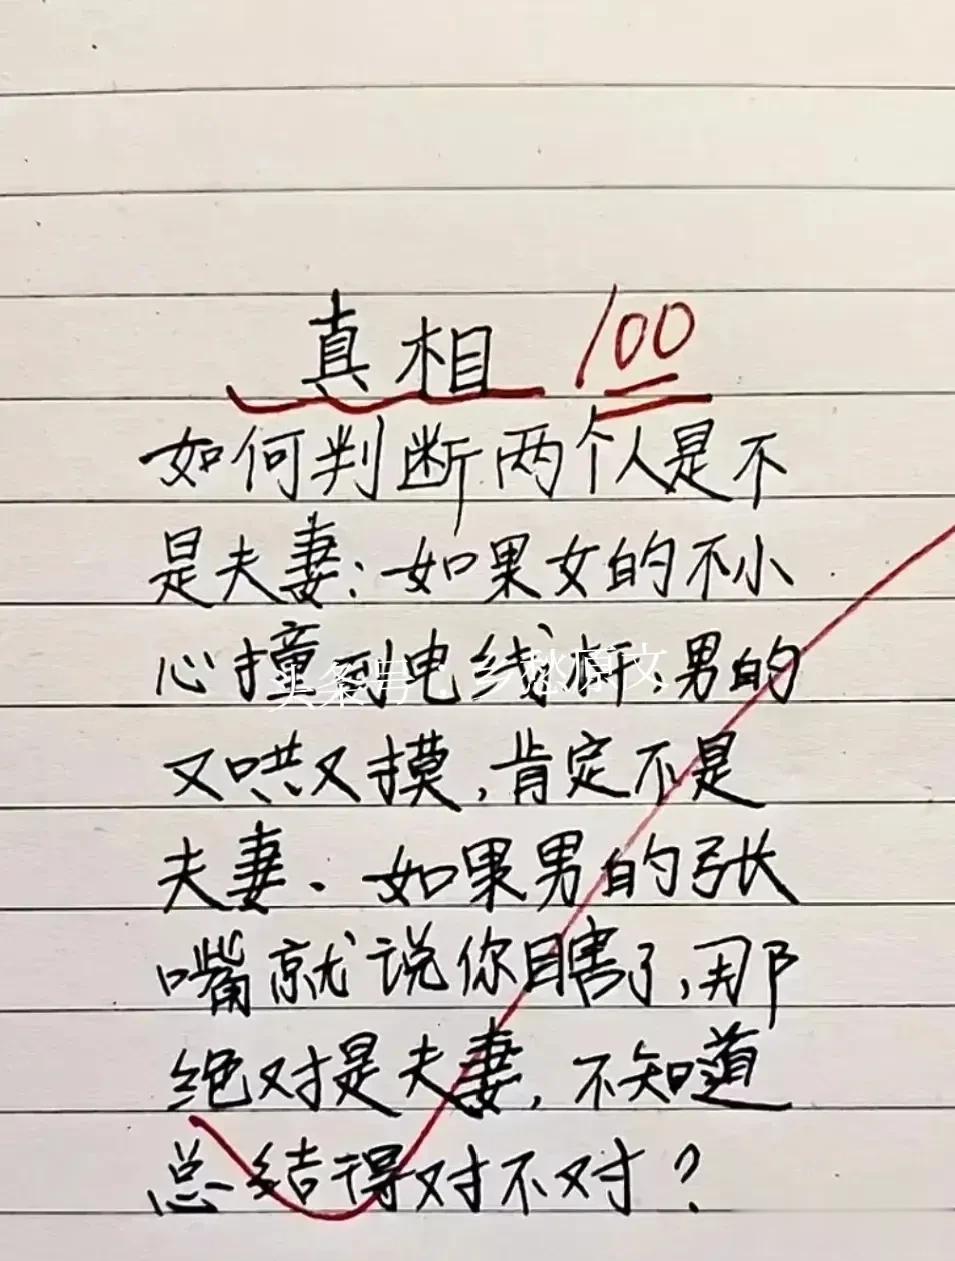 真相 100
如何判断两个人是不
是夫妻：如果女的不小
心撞到电线杆，男的
头条号：乡愁原文
又哄又摸，肯定不是
夫妻、如果男的张
嘴就说你瞎了，那
绝对是夫妻，不知道
总结得对不对？